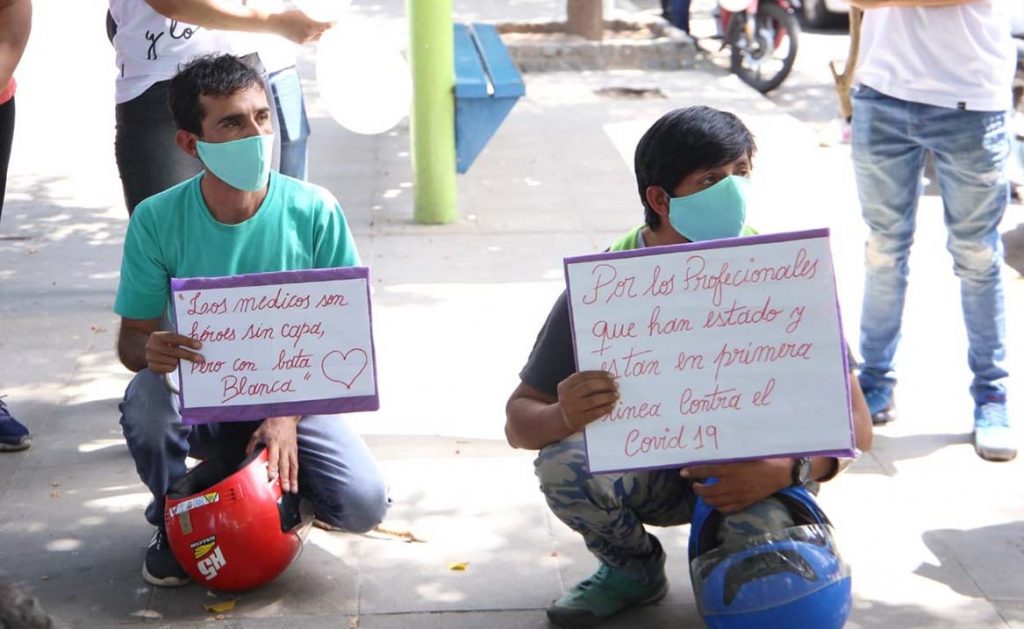 y lo
"Leos medicos son
héroes sin capa,
Pero con bata
Blanca"
HALCON
H5
Por los Profecionales
que han estado y
están en primera
linea Contra el
Covid 19